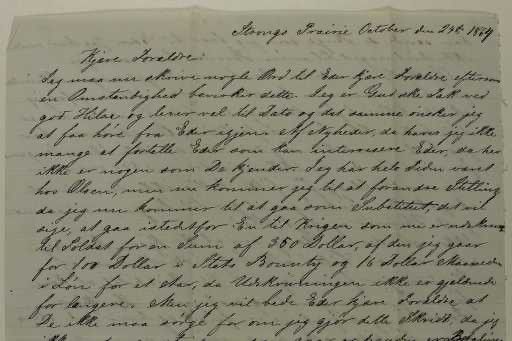 Strongs Prairie October den 24th 1864
Kjære Forældre!
Jeg maa nu skrive nogle Ord til Eder kjære Forældre eftersom
en Omstændighed bevirker dette. Jeg er Gud ske Tak ved
god Hilse og lever vel til Dato og det samme ønsker jeg
at faa høre fra Eder igjen. Af Nyheder, da haves jeg ikke
mange at fortælle Eder som kan interessere Eder, da her
ikke er nogen som De kjender. Jeg har hele Tiden været
hos Olsen, men nu kommer jeg til at forandre Stilling
da jeg nu kommer til at gaa som Substitut, det vil
sige, at gaa istedetfor En til Krigen som nu er udskreven
til Soldat for en Sum af 350 Dollar, af den jeg gaar
for 100 Dollar i Stats Bounty og 16 Dollar Maaneden
i Løn for et Aar, da Udskrivningen ikke er gjældende
for længere. Men jeg vil bede Eder kjære Forældre at
De ikke maa sørge for om jeg gjør dette Skridt, da jeg